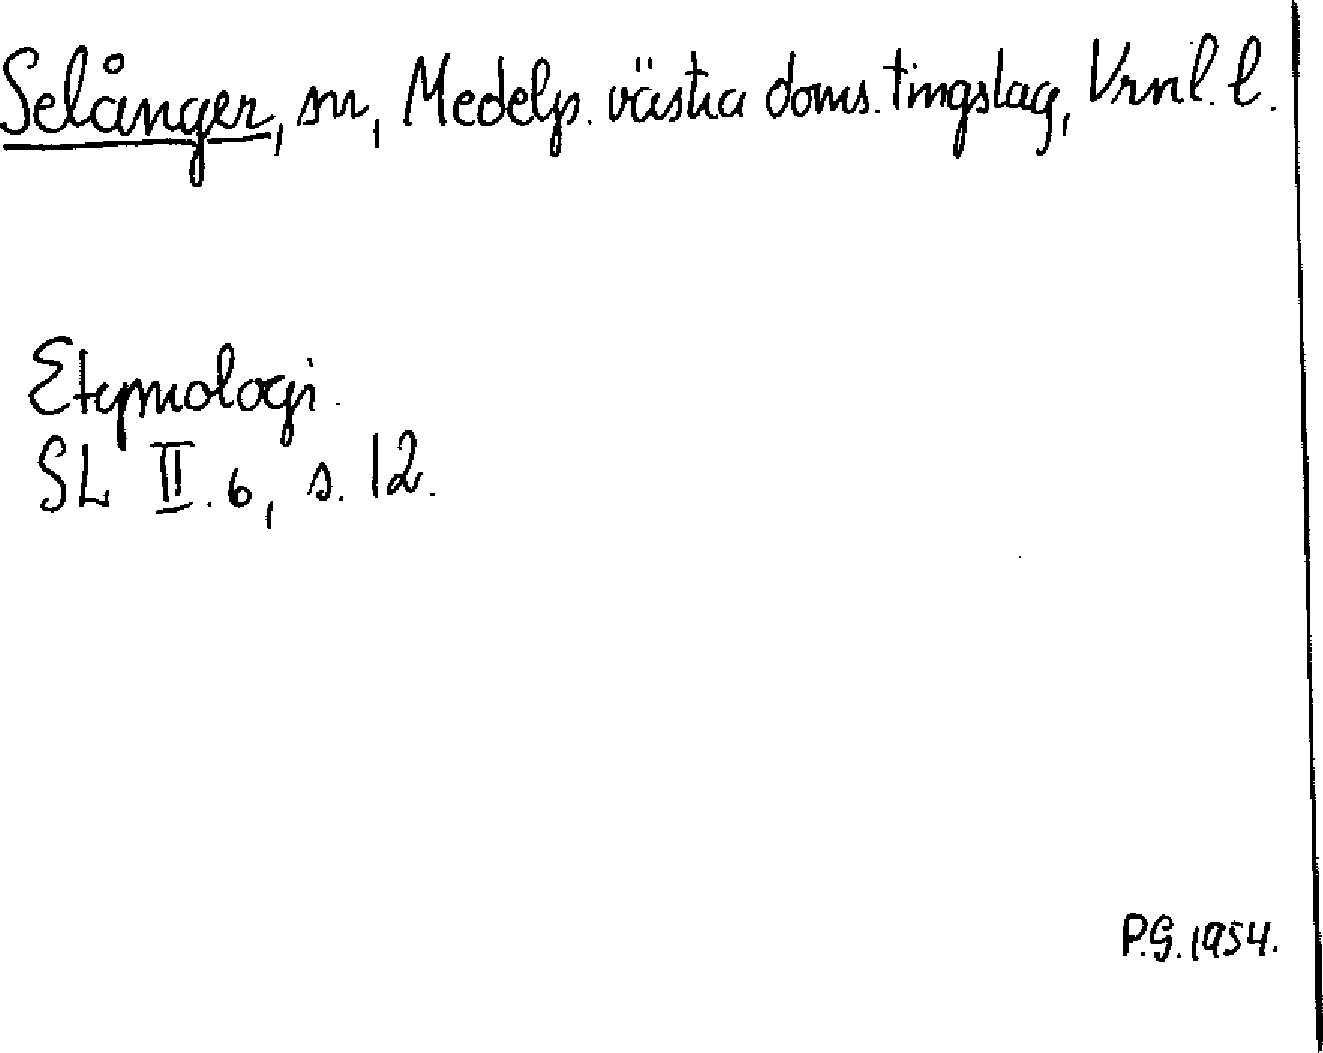 Selånger, sn, Medelp. västra doms. tingslag, Vrnl. l.
Etymologi.
SL II. 6, s. 12.
P.G. 1954.